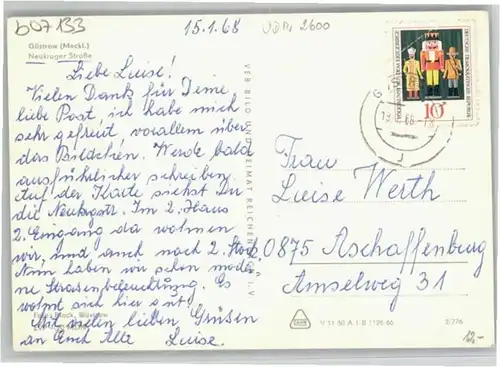 b07133
15.1.68
2600
Güstrow (Meckl.)
Neukruger Straße
Liebe Luise!
Vielen Dank für Deine
liebe Post, ich habe mich
sehr gefreut vorallem über
das Bildchen. Werde bald
ausführlicher schreiben.
Auf der Karte siehst Du
die Neukrugstr. Im 2. Haus
2. Eingang da wohnen
wir, und auch noch 2. Stock.
Nun haben wir schon moder
ne Strasenbeleuchtung. Es
wohnt sich hier gut.
Mit vielen lieben Grüsen
an Euch Alle Luise.
VEB BILD UND HEIMAT REICHENBACH I. V.
DEUTSCHE DEMOKRATISCHE REPUBLIK
10
Frau
Luise Werth
0875 Aschaffenburg
Amselweg 31
V 11 50 A 1 B 1126 66
2/776
12,-